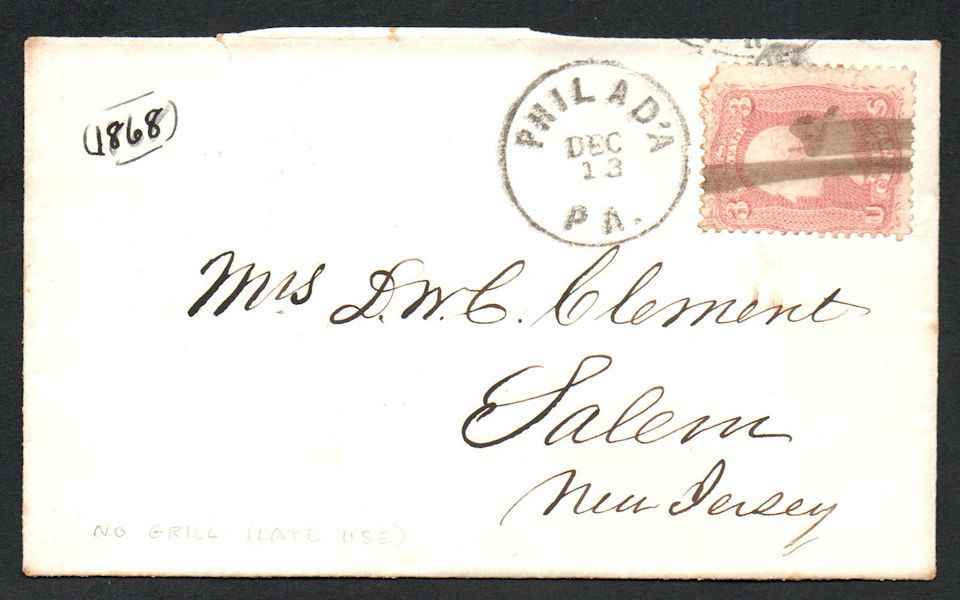 (1868)
PHILAD'A
DEC
13
PA.
3 3
U S
Mrs D.W.C. Clement
Salem
New Jersey
NO GRILL (LATE USE)